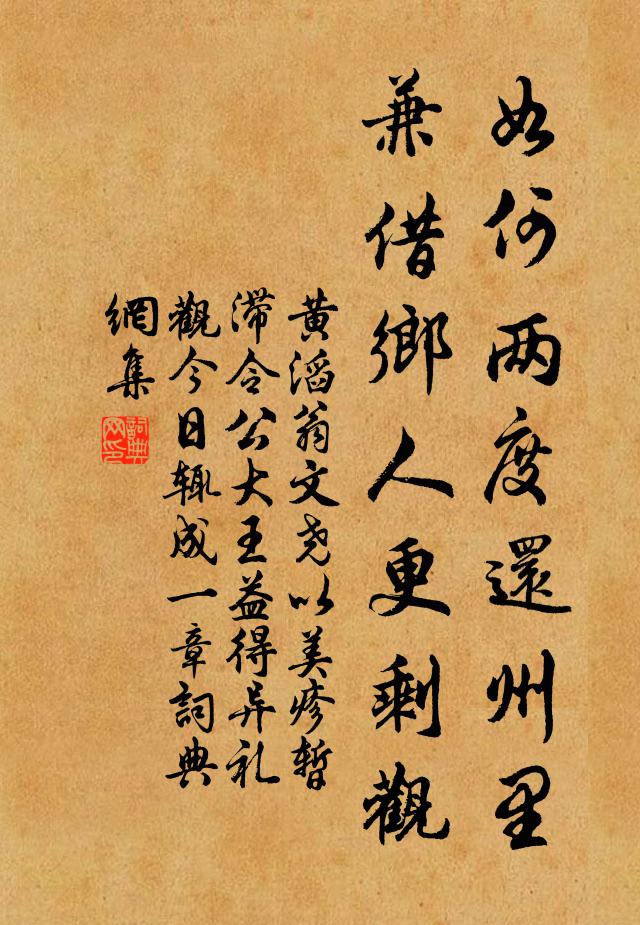 如何两度還州里
兼借鄉人更剩觀
黄滔翁文尧以美疹暂
滞令公大王益得异礼
觀今日辄成一章詞典
網集
詞典網印